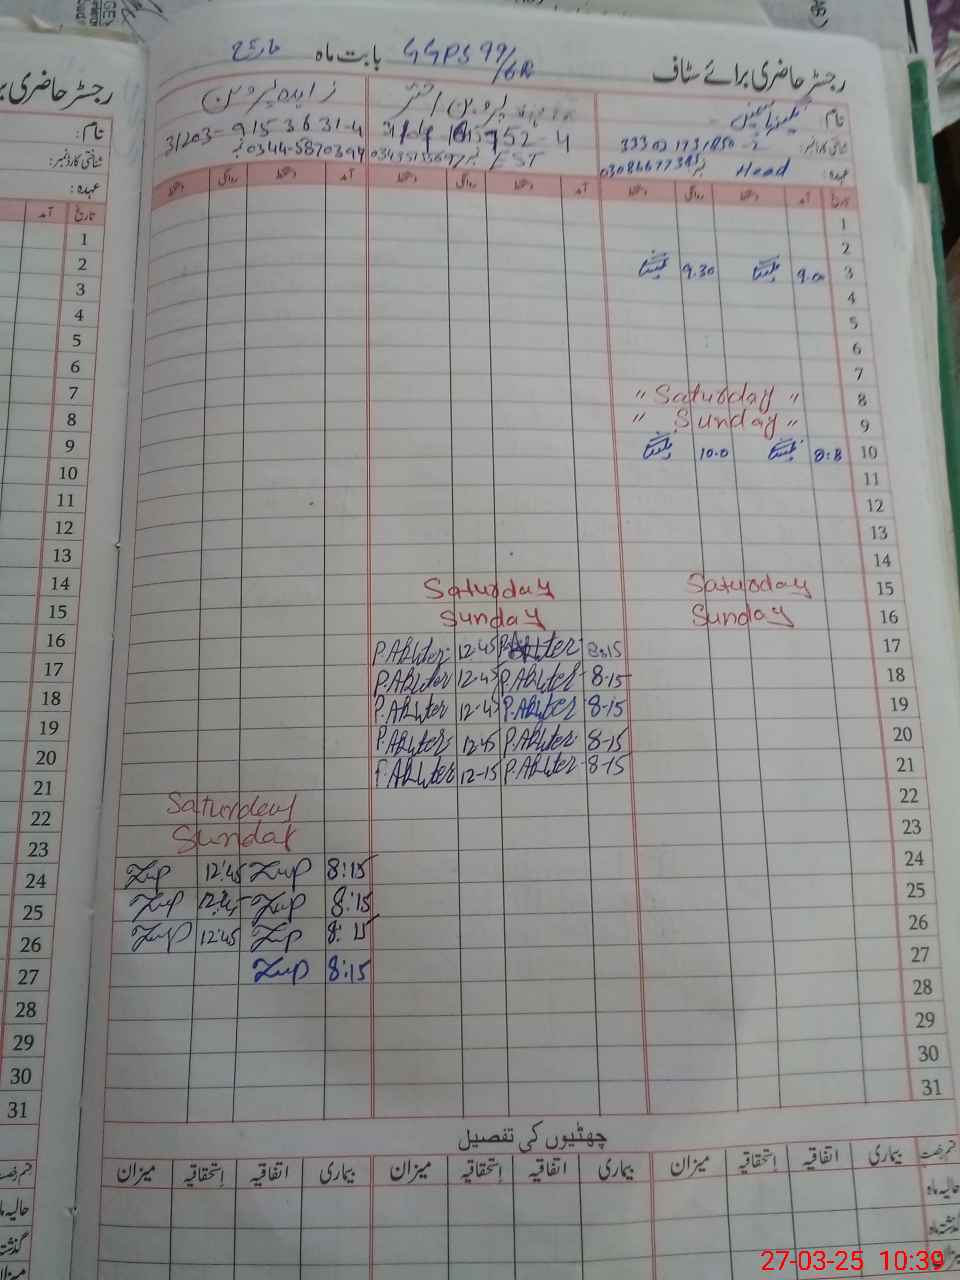 رجسٹر حاضری برائے سٹاف بابت ماہ GGPS 99/6R مارچ
نام: پروین اختر زاہدہ پروین
شناختی کارڈ نمبر: 31203-9153631-4
نمبر 0344-5870394
عہدہ: Head EST
تاریخ آمد دستخط روانگی دستخط آمد دستخط روانگی دستخط آمد دستخط روانگی دستخط
1
2
3 9.00 9.30
4
5
6
7
8 " Saturday "
9 " Sunday "
10 10.0
11
12
13
14
15 Saturday Saturday
16 Sunday Sunday
17 8:15 P.Akhter 12-45 P.Akhter
18 8-15 P.Akhter 12-45 P.Akhter
19 8-15 P.Akhter 12-45 P.Akhter
20 8-15 P.Akhter 12-45 P.Akhter
21 8-15 P.Akhter 12-15 P.Akhter
22 Saturday
23 Sunday
24 8:15 Zup 12:45 Zup
25 8:15 Zup 12:45 Zup
26 8:15 Zup 12:45 Zup
27 8:15 Zup
28
29
30
31
چھٹیوں کی تفصیل
قسم رخصت بیماری اتفاقیہ استحقاقیہ میزان بیماری اتفاقیہ استحقاقیہ میزان بیماری اتفاقیہ استحقاقیہ میزان
حالیہ ماہ
گذشتہ ماہ
میزان
رجسٹر حاضری
نام:
شناختی کارڈ نمبر:
عہدہ:
تاریخ آمد
1
2
3
4
5
6
7
8
9
10
11
12
13
14
15
16
17
18
19
20
21
22
23
24
25
26
27
28
29
30
31
قسم رخصت
حالیہ ماہ
گذشتہ
میزان
27-03-25 10:39